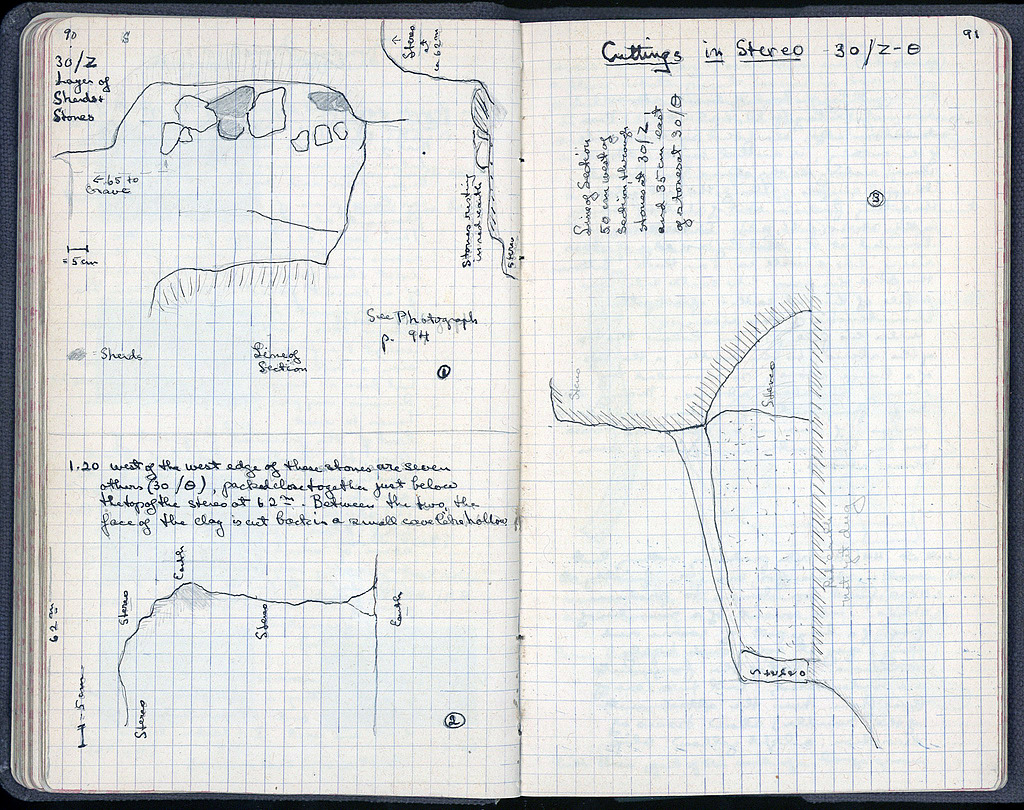 90
30/Z
Layer of
Sherds +
Stones
← .65 to
Grave
= 5 cm
= Sherds
Line of
Section
Stereo
at
ca 62 m
Stones resting
in red earth
Stereo
See Photograph
p. 94
1
1.20 west of the west edge of these stones are seven
others (30/Θ), packed close together just below
the top of the stereo at 62 m. Between the two, the
face of the clay is cut back in a small cave like hollow
62 m
= 5 cm
Stereo
Earth
Stereo
Earth
Stereo
2
91
Cuttings in Stereo 30/Z-Θ
Line of Section
50 cm west of
Section through
stones at 30/Z
and 35 cm east
of stones at 30/Θ
3
Stereo
Stereo
not yet dug
Stereo